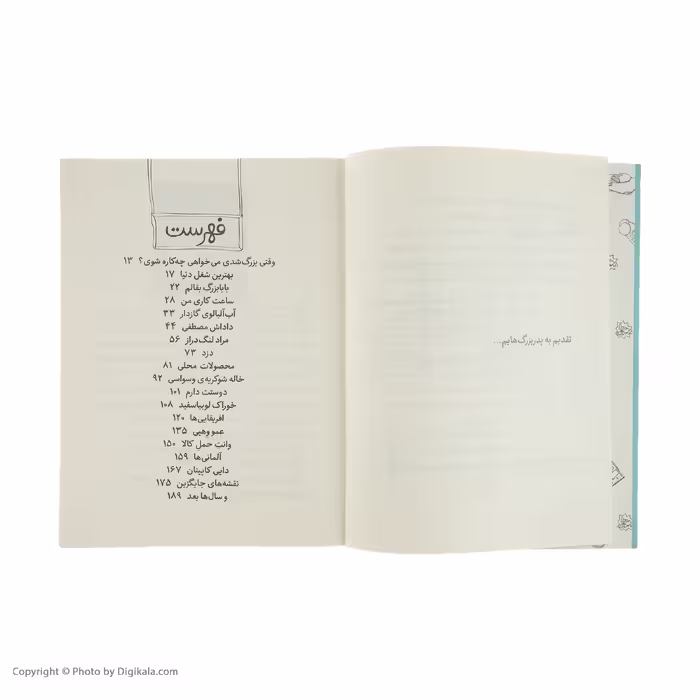 تقدیم به پدربزرگ‌هایم...
فهرست
وقتی بزرگ شدی می‌خواهی چه‌کاره شوی؟ ۱۳
بهترین شغل دنیا ۱۷
بابابزرگ بقالم ۲۲
ساعت کاری من ۲۸
آب‌آلبالوی گازدار ۳۳
داداش مصطفی ۴۴
مراد لنگ‌دراز ۵۶
دزد ۷۳
محصولات محلی ۸۱
خاله شوکریه‌ی وسواسی ۹۲
دوستت دارم ۱۰۱
خوراک لوبیاسفید ۱۰۸
افریقایی‌ها ۱۲۰
عمو وهبی ۱۳۵
وانت حمل کالا ۱۵۰
آلمانی‌ها ۱۵۹
دایی کاپیتان ۱۶۷
نقشه‌های جایگزین ۱۷۵
و سال‌ها بعد ۱۸۹
Copyright © Photo by Digikala.com